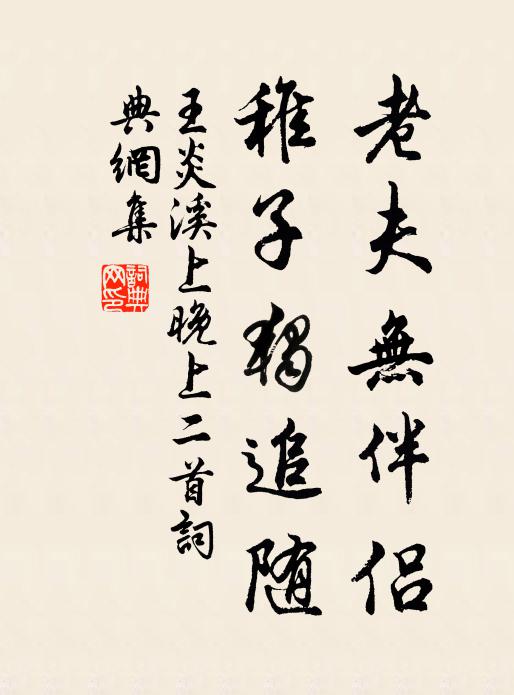 老夫無伴侶
稚子獨追随
王炎溪上晚上二首詞
典網集
詞典網印